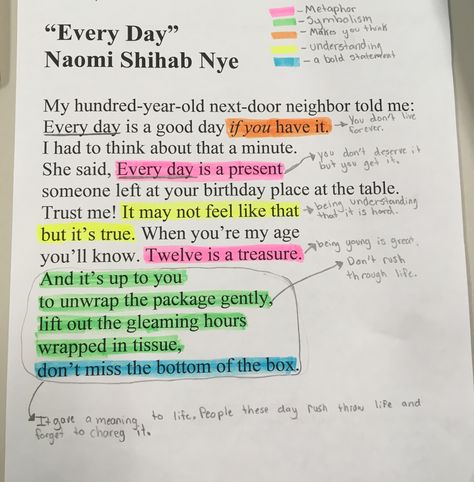 - Metaphor
- Symbolism
- Makes you think
- understanding
- a bold statement
“Every Day”
Naomi Shihab Nye
My hundred-year-old next-door neighbor told me:
Every day is a good day if you have it.
You don't live
forever.
I had to think about that a minute.
She said, Every day is a present
you don't deserve it
but you get it.
someone left at your birthday place at the table.
Trust me! It may not feel like that
being understanding
that it is hard.
but it's true. When you're my age
you'll know. Twelve is a treasure.
being young is great.
And it's up to you
Don't rush
through life.
to unwrap the package gently,
lift out the gleaming hours
wrapped in tissue,
don't miss the bottom of the box.
It gave a meaning to life. People these day rush throw life and
forget to it.